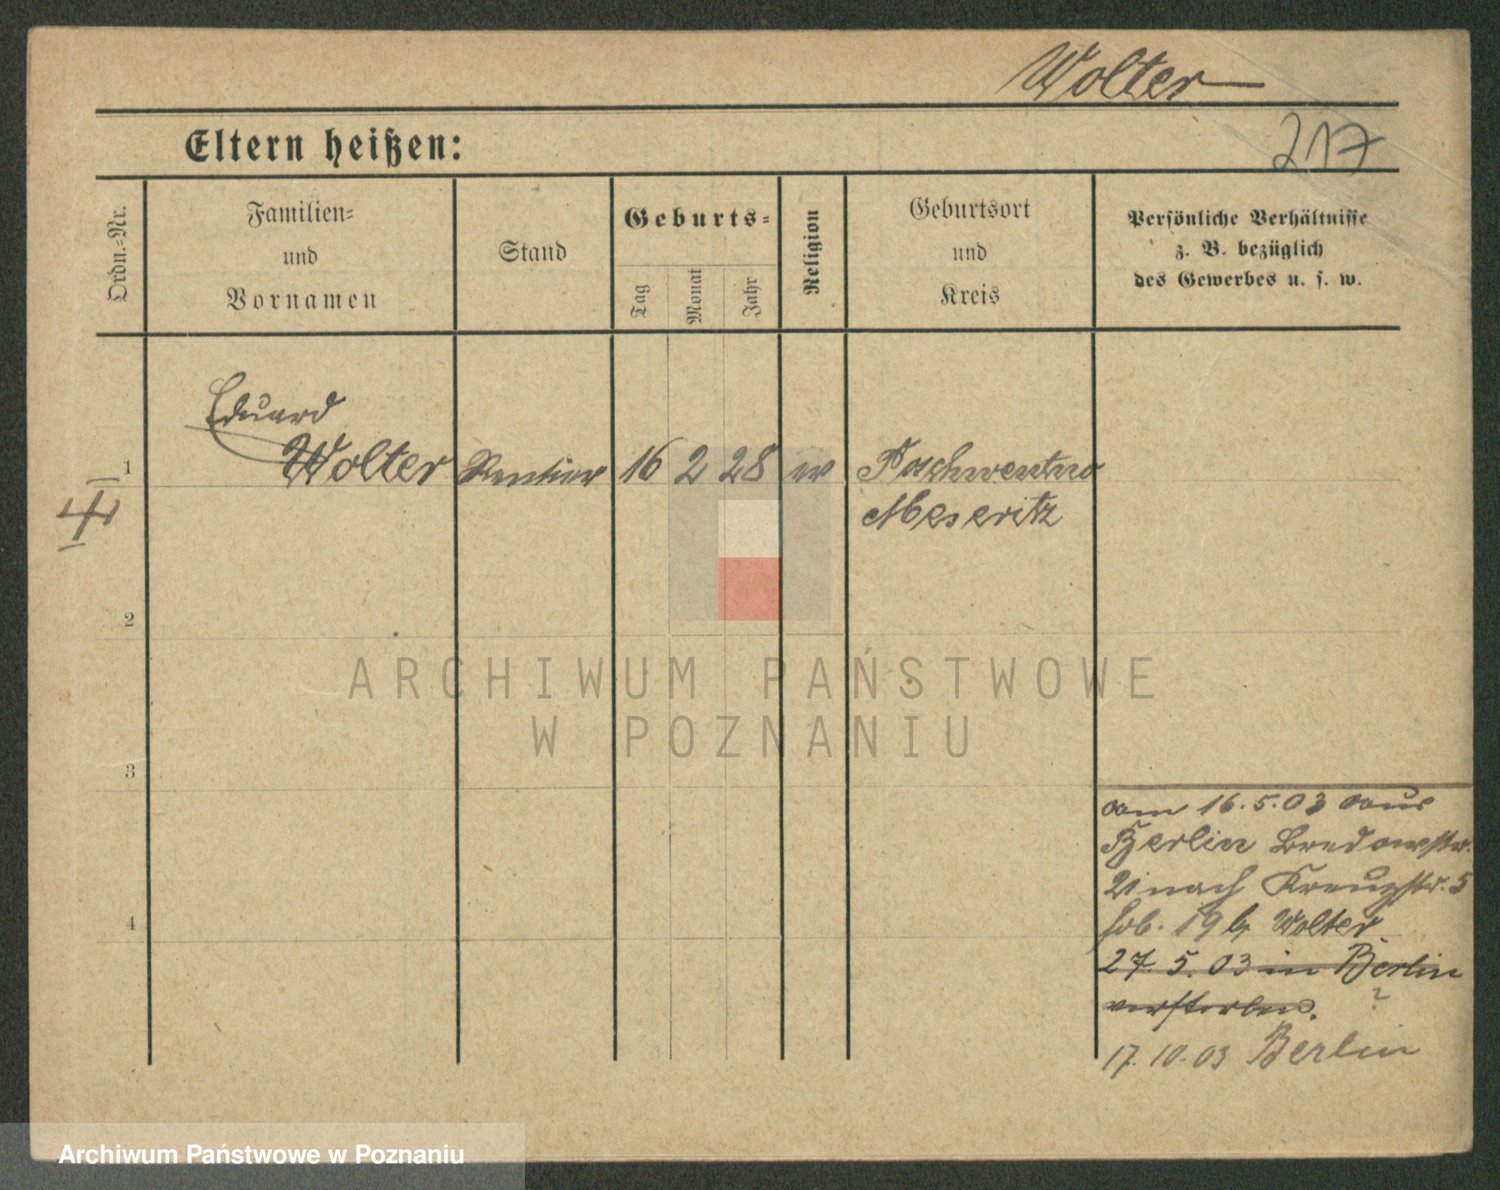 Wolter
217
Eltern heißen:
Ordn.-Nr.
Familien-
und
Vornamen
Stand
Geburts-
Tag
Monat
Jahr
Religion
Geburtsort
und
Kreis
Persönliche Verhältnisse
z. B. bezüglich
des Gewerbes u. s. w.
Eduard
1 Wolter Rentier 16 2 28 ev
Meseritz
2
ARCHIWUM PAŃSTWOWE
W POZNANIU
3
am 16.5.03 aus
Berlin Bredowstr.
nach Kreuzstr. 5
19 Wolter
4
27. 5. 03 in Berlin
verstorben. ?
17. 10. 03 Berlin
Archiwum Państwowe w Poznaniu